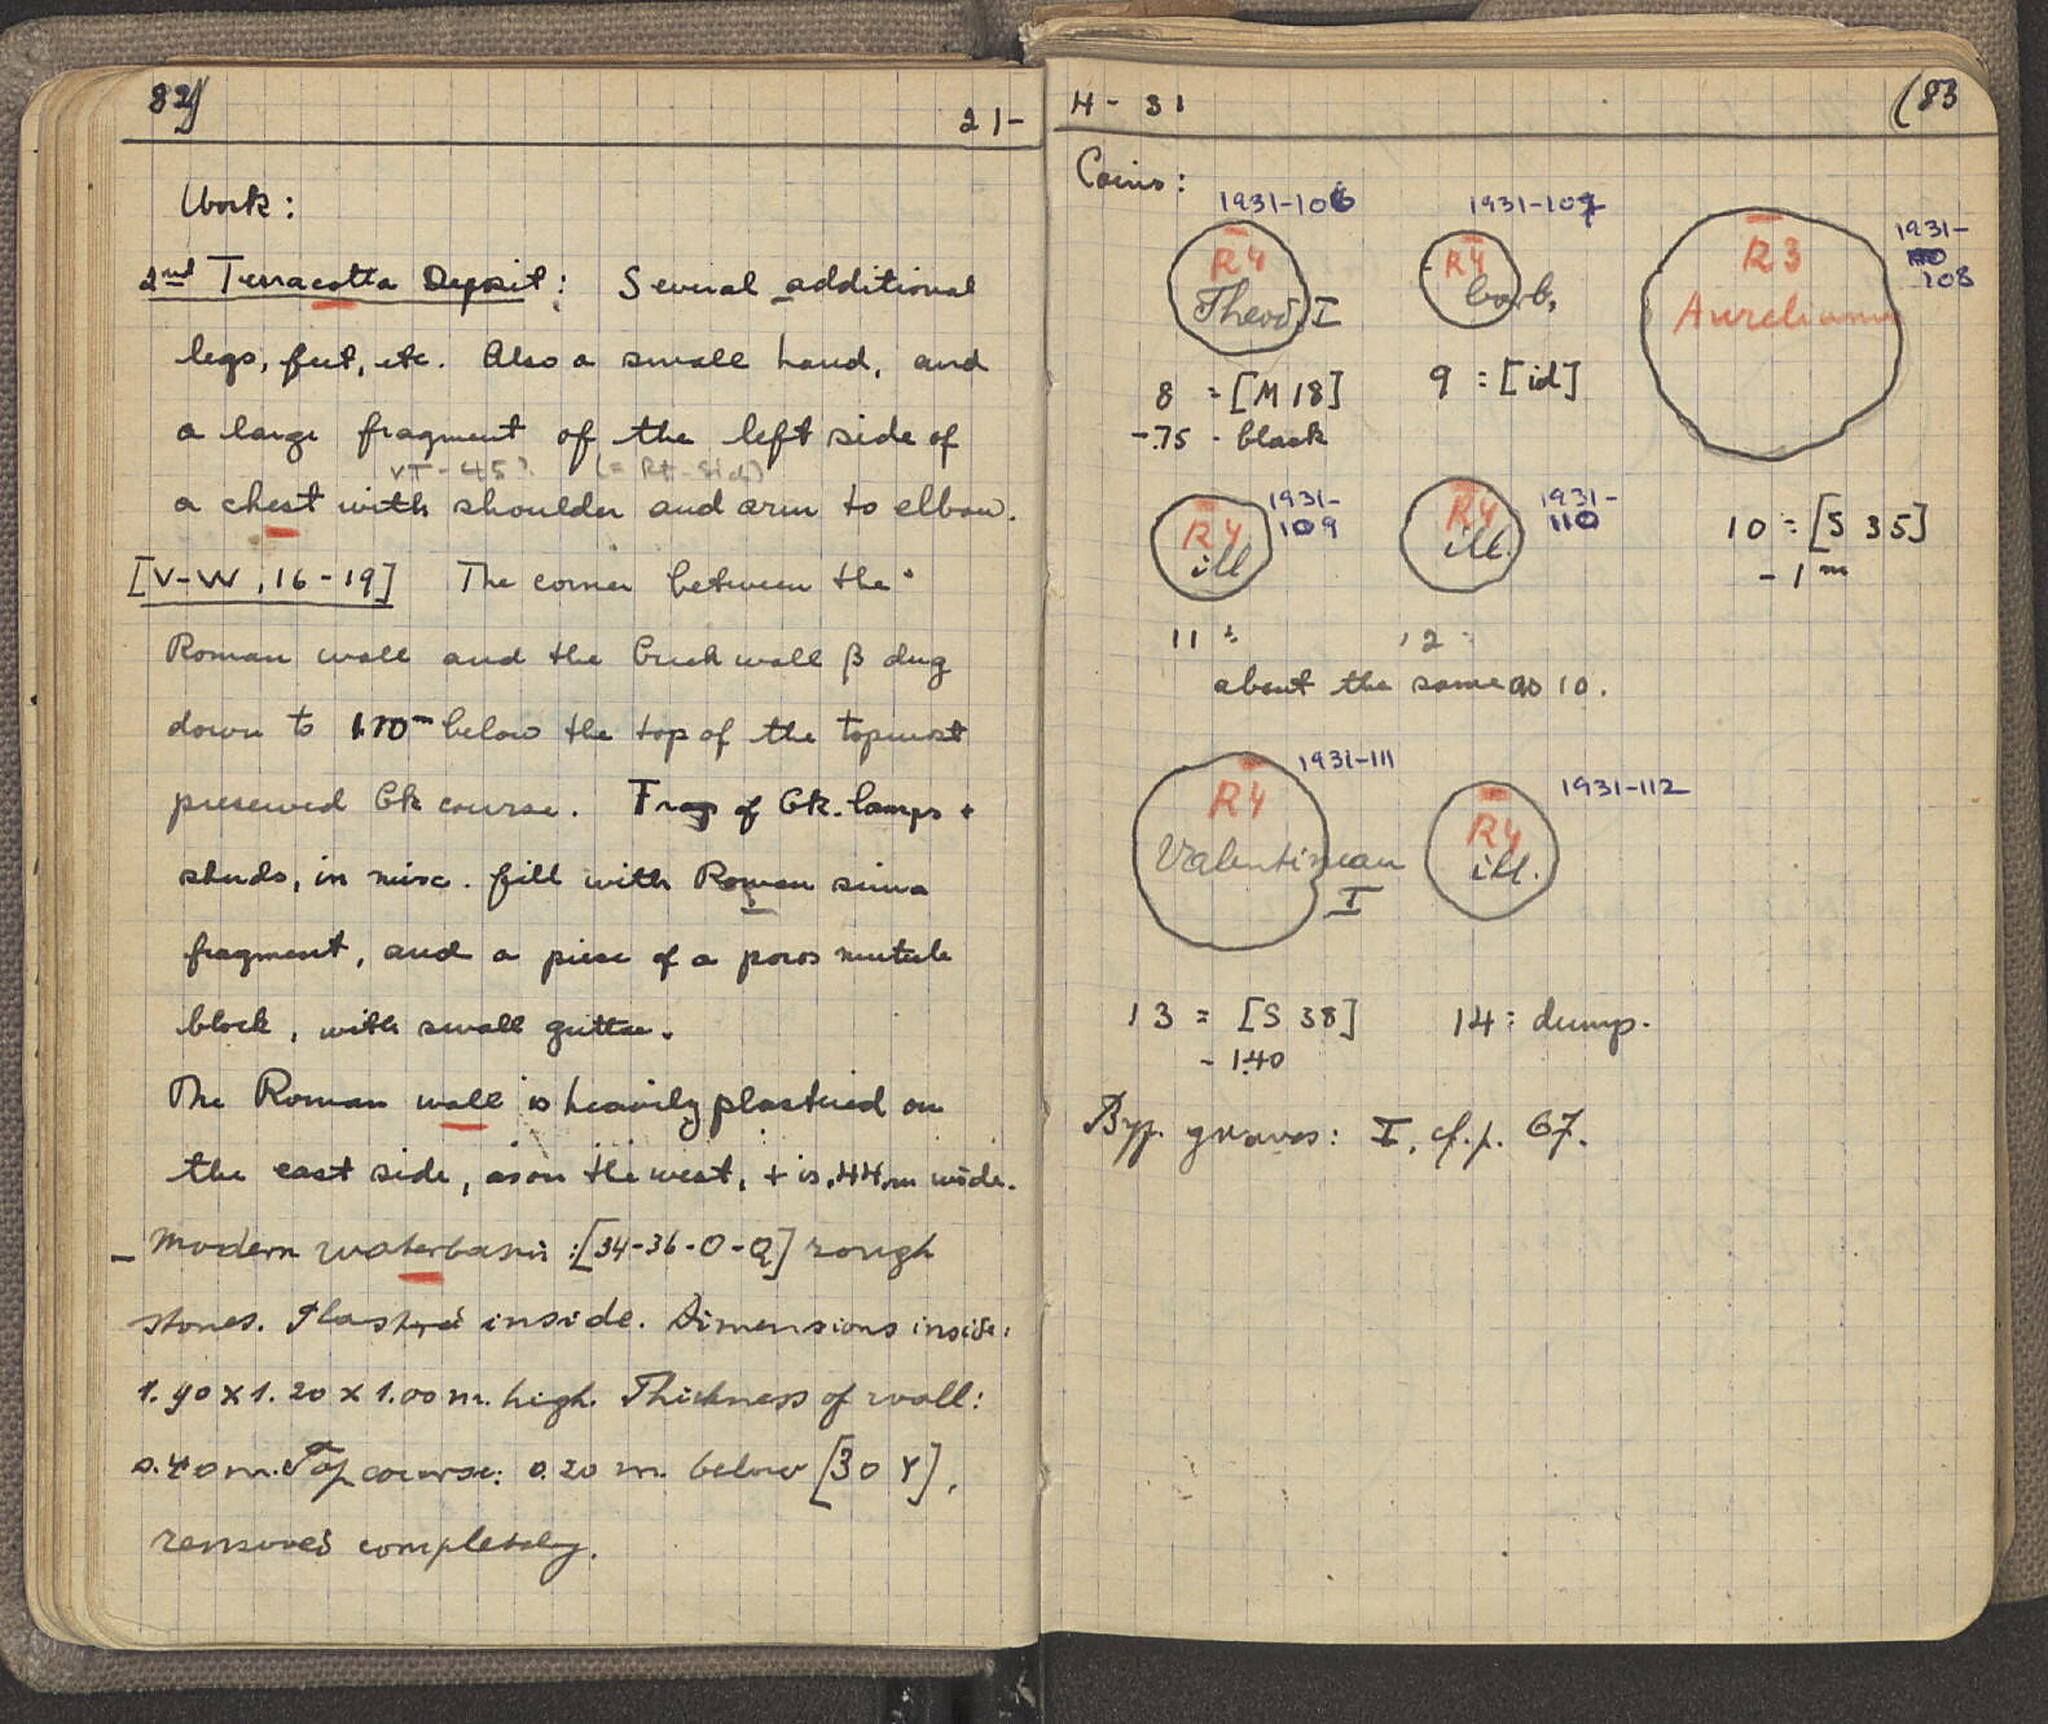 82)
21-
Work:
2nd Terracotta Deposit: Several additional
legs, feet, etc. Also a small hand, and
a large fragment of the left side of
VT-45? (= Rt-Side)
a chest with shoulder and arm to elbow.
[V-W, 16-19] The corner between the
Roman wall and the Greek wall β dug
down to 1.70m below the top of the topmost
preserved Gk course. Frags of Gk. lamps +
sherds, in misc. fill with Roman sima
fragment, and a piece of a poros mutule
block, with small guttae.
The Roman wall is heavily plastered on
the east side, as on the west, + is .44m wide.
- Modern waterbasin: [34-36-O-Q] rough
stones. Plastred inside. Dimensions inside:
1.90 x 1.20 x 1.00 m. high. Thickness of wall:
0.40 m. Top course: 0.20 m. below [30 Y],
removed completely.
4-31
(83
Coins:
1931-106
1931-107
1931-
108
R4
Theod. I
R4
barb.
R3
Aurelianus
8 = [M 18]
9 = [id]
-.75 - black
R4
ill
1931-
109
R4
ill.
1931-
110
10 = [S 35]
-1m
11 =
12 =
about the same as 10.
1931-111
1931-112
R4
Valentinian
I
R4
ill.
13 = [S 38]
14 = dump.
- 1.40
Byz. graves: I, cf. p. 67.